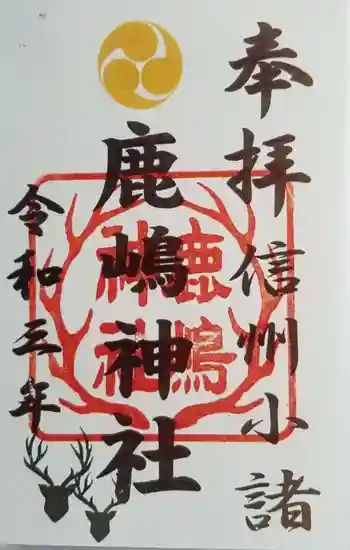 奉拝信州小諸
鹿嶋神社
鹿嶋
神社
令和三年